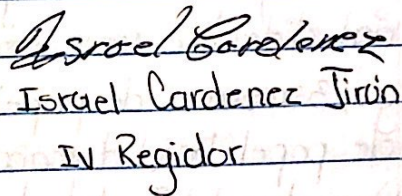 Israel Cardenez
Israel Cardenez Jirón
IV Regidor